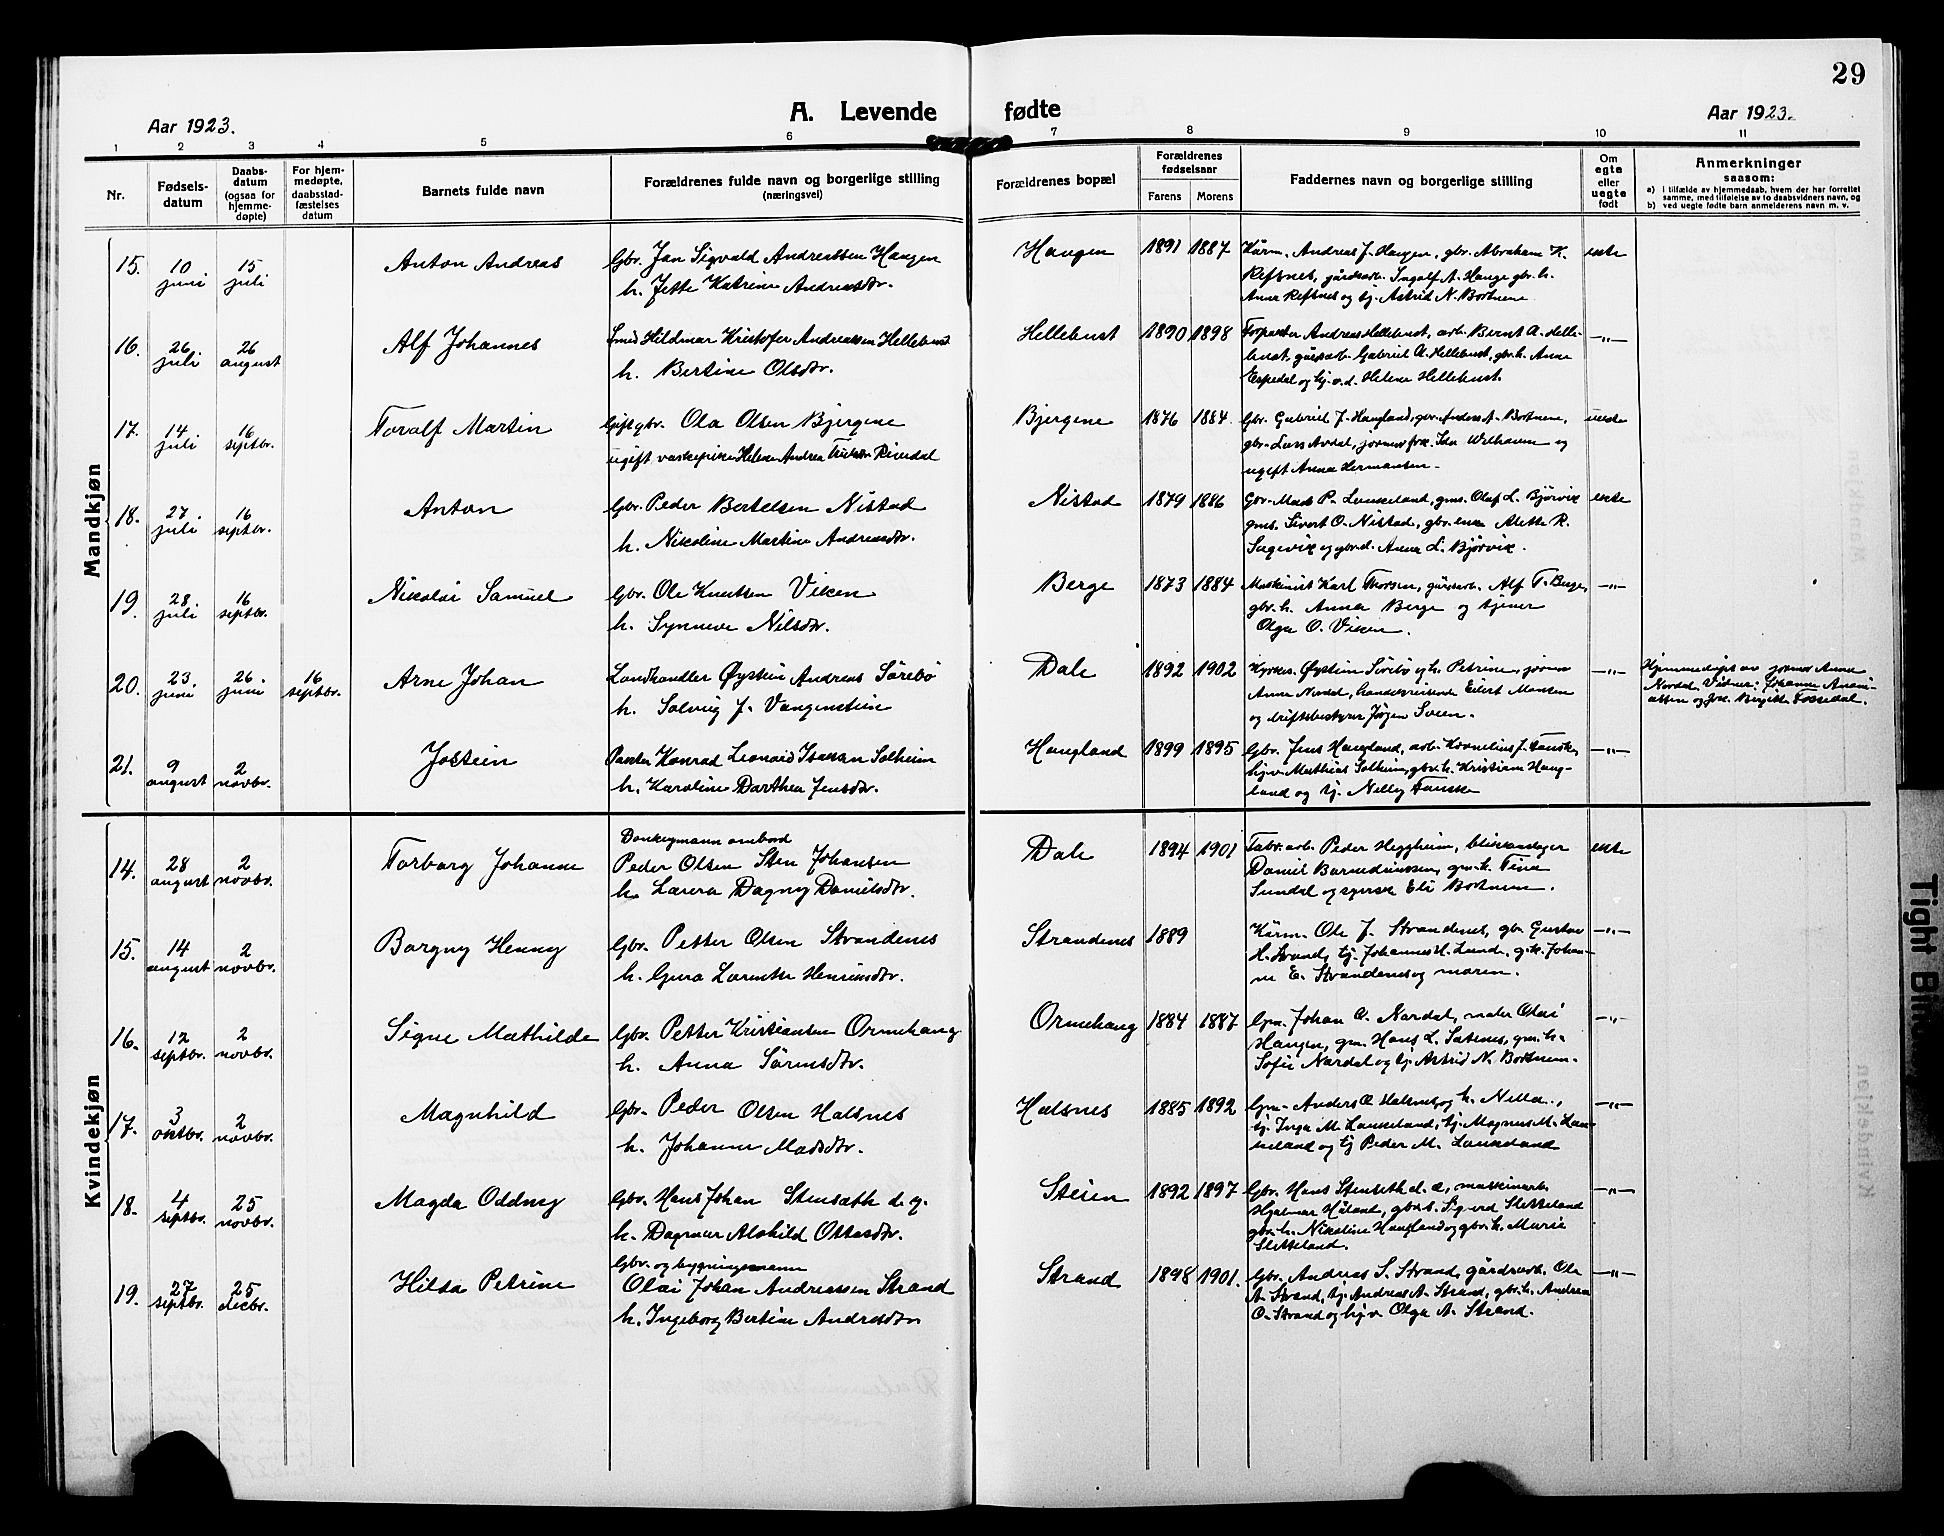 29
A. Levende fødte
Aar 1923.
Aar 1923.
1 2 3 4 5 6 7 8 9 10 11
Nr.
Fødsels-
datum
Daabs-
datum
(ogsaa for
hjemme-
døpte)
For hjem-
medøpte,
daabsstad-
fæstelses
datum
Barnets fulde navn
Forældrenes fulde navn og borgerlige stilling
(næringsvei)
Forældrenes bopæl
Forældrenes
fødselsaar
Farens Morens
Faddernes navn og borgerlige stilling
Om
egte
eller
uegte
født
Anmerkninger
saasom:
a) i tilfælde av hjemmedaab, hvem der har forrettet
samme, med tilføielse av to daabsvidners navn, og
b) ved uegte fødte barn anmelderens navn m. v.
Mandkjøn
15. 10 juni 15 juli Anton Andreas
Gbr. Jan Sigvald Andreassen Haugen
h. Jette Katrine Andreasdr.
Haugen 1891 1887
Kårm. Andreas J. Haugen, gbr. Abraham K.
Refsnes, gårdsarb. Ingolf A. Hauge gbr. h.
Anna Refsnes og tj. Astrid N. Bortnene
ekte
16. 26 juli 26 august Alf Johannes
Smed Hildmar Kristofer Andreassen Hellebust
h. Bertine Olsdr.
Hellebust 1890 1898
Forpakter Andreas Hellebust, arb. Bernt A. Helle-
bust, gårdsarb. Gabriel A. Hellebust, gbr. h. Anna
Espedal og tj. v. d. Helene Hellebust.
—"—
17. 14 juli 16 septbr. Toralf Martin
Gift gbr. Ola Olsen Bjergene
ugift vaskepike Helene Andrea Rivedal
Bjergene 1876 1884
Gbr. Gabriel J. Haugland, gbr. Anders A. Bortnene,
gbr. Lars Avdal, jormor frk. Ida Welhaven og
ugift Anna Hermansen.
uekte
18. 27 juli 16 septbr. Anton
Gbr. Peder Bertelsen Nistad
h. Nikoline Martine Andreasdr.
Nistad 1879 1886
Gbr. Mads P. Laukeland, gms. Olaf L. Bjørvik
gms. Sivert O. Nistad, gbr. enke Alette R.
Sagevik og gbr. d. Anna L. Bjørvik.
ekte
19. 28 juli 16 septbr. Nikolai Samuel
Gbr. Ole Knutsen Viken
h. Synneve Nilsdr.
Berge 1873 1884
Maskinist Karl Thorsen, gårdsarb. Alf T. Berge,
gbr. h. Anna Berge og tjener
Olga O. Viken.
—"—
20. 23 juni 26 juni 16 septbr. Arne Johan
Landhandler Øystein Andreas Sørebø
h. Solveig J. Vangenstein
Dale 1892 1902
Kyrkes. Øystein Sørebø og h. Petrine, jormor
Anna Nordal, handelsreisende Eilert Monsen
og driftsbestyrer Jørgen Sveen.
—"—
Hjemmedøpt av jormor Anna
Nordal. Vidner: Johanne
og frk. Birgitte Fossedal.
21. 9 august 2 novbr. Jostein
Konrad Leonard Isaksen Solheim
h. Karoline Darthea Jensdr.
Haugland 1899 1895
Gbr. Jens Haugland, arb. Kornelius J. Fauske,
Mathias Solheim, gbr. h. Kristiane Haug-
land og tj. Nelly Fauske
—"—
Kvindekjøn
14. 28 august 2 novbr. Torborg Johanne
Donkeymann ombord
Peder Olsen Sten Johansen
h. Laura Dagny Danielsdr.
Dale 1894 1901
Fabr. arb. Peder Heggheim, blikkenslager
Daniel Bernedriussen, gm. h. Tina
Sundal og syerske Eli Bortnem.
ekte
15. 14 august 2 novbr. Borgny Henny
Gbr. Petter Olsen Strandenes
h. Gura Larentse Henriksdr.
Strandenes 1889
Kårm. Ole J. Strandenes, gbr. Gustav
H. Strand, tj. Johannes H. Lunde, g. h. Johan-
ne E. Strandenes og moren.
—"—
16. 12 septbr. 2 novbr. Signe Mathilde
Gbr. Petter Kristiansen Ormehaug
h. Anna Sørensdr.
Ormehaug 1884 1887
Gm. Johan O. Nordal, maler Olai
Haugen, gm. Hans L. Sætenes, gm. h.
Sofie Nordal og tj. Astrid N. Bortnem.
—"—
17. 3 oktbr. 2 novbr. Magnhild
Gbr. Peder Olsen Halsnes
h. Johanne Madsdr.
Halsnes 1885 1892
Gm. Anders O. Halsnes og h. Nella,
tj. Inga M. Laukeland, tj. Magnus M. Lau-
keland og tj Peder M. Laukeland
—"—
18. 4 septbr. 25 novbr. Magda Oddny
Gbr. Hans Johan Stensæth d. y.
h. Dagmar Alvhild Ottosdr.
Steien 1892 1897
Gbr. Hans Stenseth d. e., maskinarb.
Hjalmar Håland, gbr. s. Sigurd Sletteland
gbr. h. Nikoline Haugland og gbr. h. Maria
Sletteland.
—"—
19. 27 septbr. 25 decbr. Hilda Petrine
Gbr. og bygningsmann
Olai Johan Andreassen Strand
h. Ingeborg Bertine Andresdr
Strand 1898 1901.
Gbr. Andreas S. Strand, gårdsarb. Ole
A. Strand, tj. Andreas A. Strand, gbr. h. Andrea
O. Strand og hj. v. Olga A. Strand.
—"—
Tight Bin